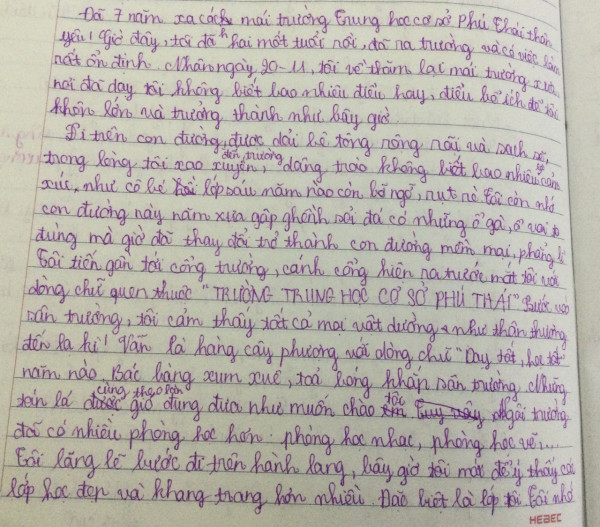 Đã 7 năm xa cách mái trường Trung học cơ sở Phú Thái thân
yêu! Giờ đây, tôi đã hai mốt tuổi rồi, đã ra trường và có việc làm
rất ổn định. Nhân ngày 20-11, tôi về thăm lại mái trường xưa
nơi đã dạy tôi không biết bao nhiêu điều hay, điều bổ ích để tôi
khôn lớn và trưởng thành như bây giờ.
Đi trên con đường được dải bê tông rộng rãi và sạch sẽ,
đến trường
trong lòng tôi xao xuyến, dâng trào không biết bao nhiêu cảm
xúc, như cô bé lớp sáu năm nào còn bỡ ngỡ, rụt rè. Tôi còn nhớ
con đường này năm xưa gập ghềnh sỏi đá có những ổ gà, ổ voi to
đùng mà giờ đã thay đổi trở thành con đường mềm mại, phẳng lì
Tôi tiến gần tới cổng trường, cánh cổng hiện ra trước mắt tôi với
dòng chữ quen thuộc "TRƯỜNG TRUNG HỌC CƠ SỞ PHÚ THÁI" Bước vào
sân trường, tôi cảm thấy tất cả mọi vật dường như thân thương
đến lạ kì! Vẫn là hàng cây phượng với dòng chữ "Dạy tốt, học tốt
năm nào. Bác bàng xum xuê, toả bóng khắp sân trường. Những
cùng theo làn
tán lá gió đung đưa như muốn chào tôi Ngôi trường
đã có nhiều phòng học hơn: phòng học nhạc, phòng học vẽ...
Tôi lặng lẽ lướt đi trên hành lang, bây giờ tôi mới để ý thấy các
lớp học đẹp và khang trang hơn nhiều. Đặc biệt là lớp tôi Tôi nhớ
HEBEC